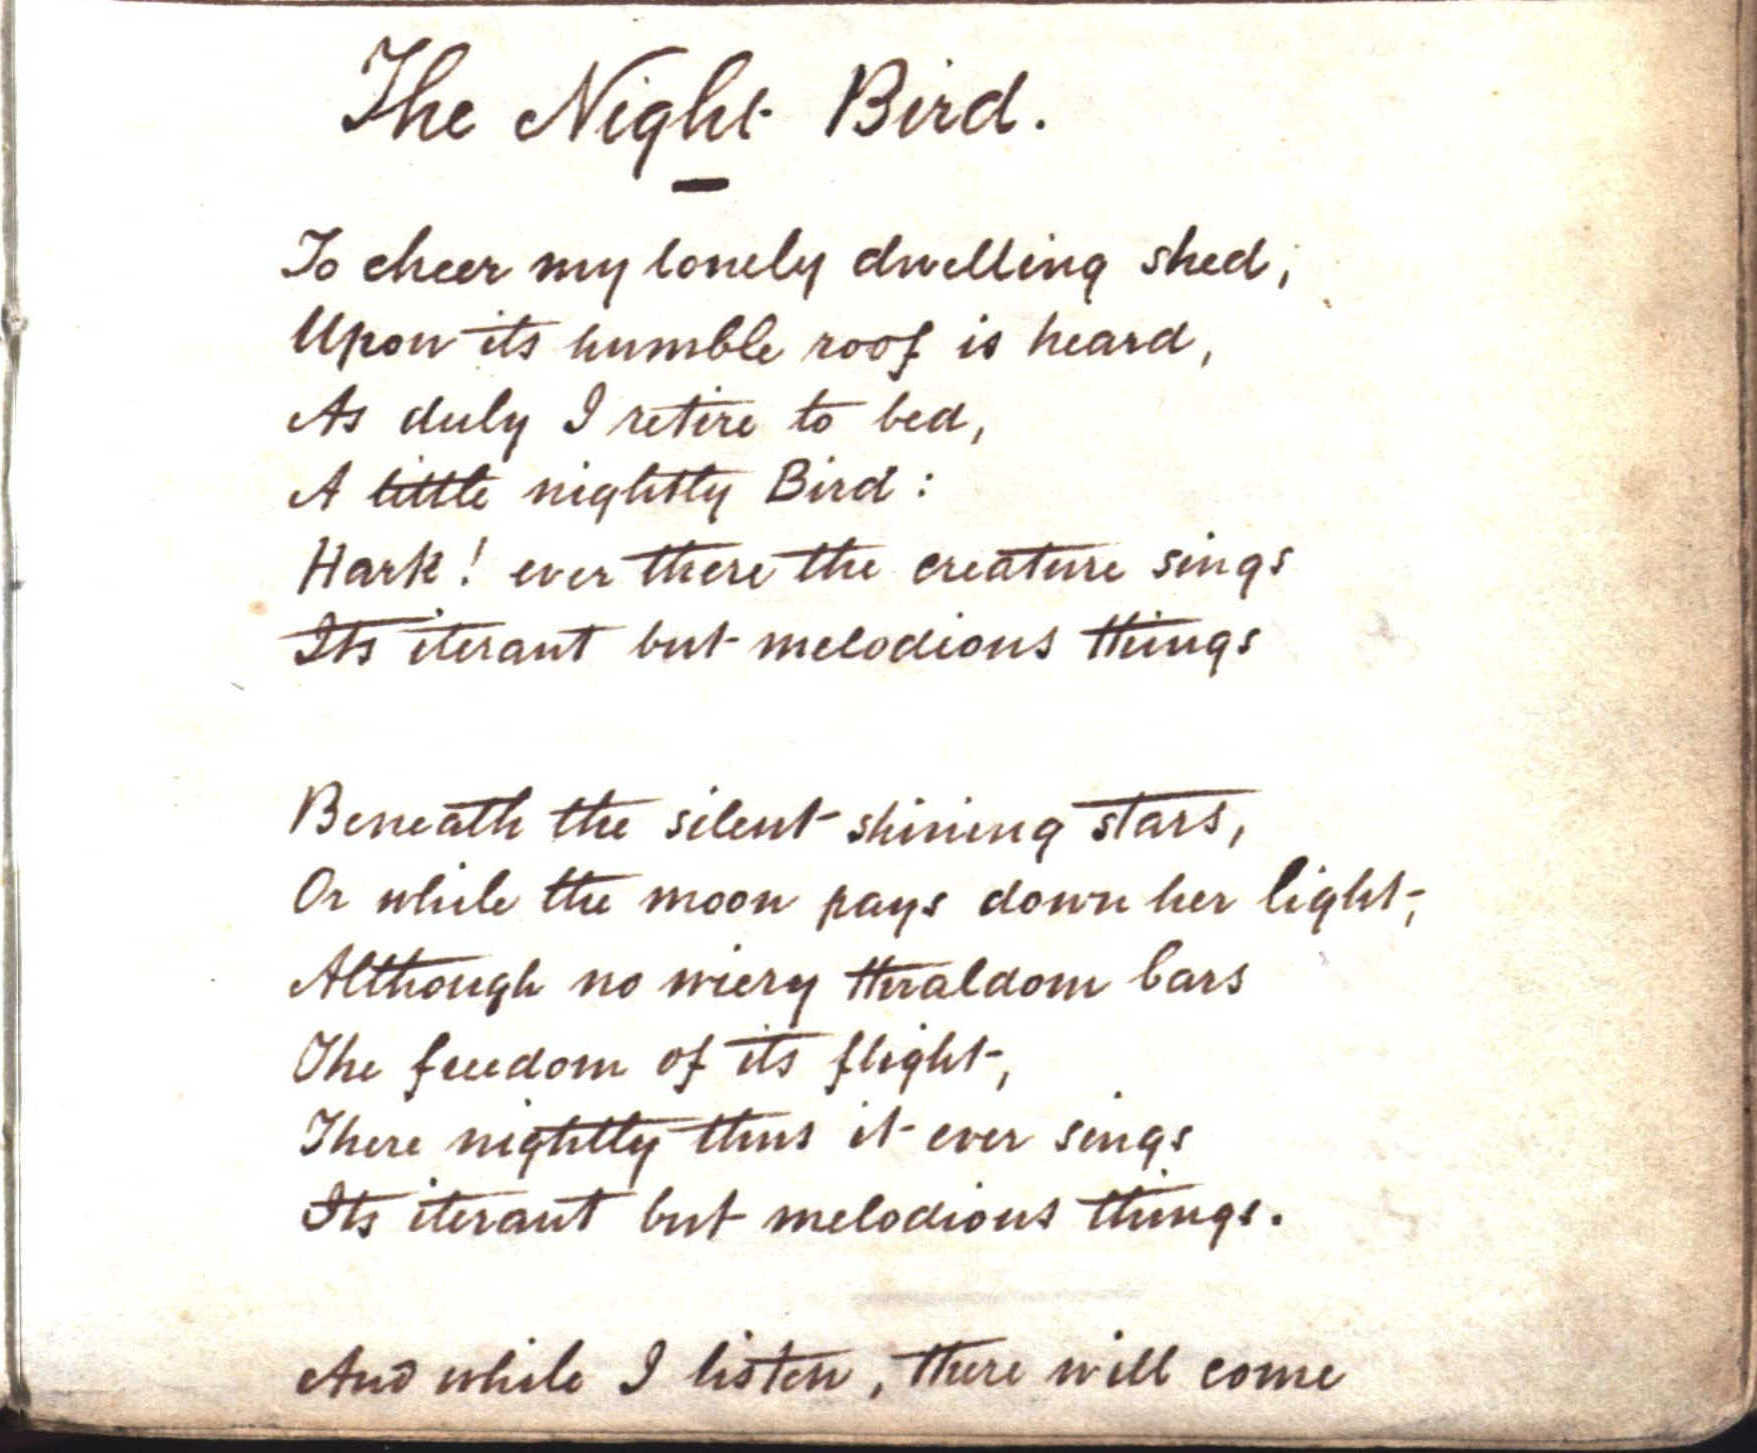 The Night Bird.
To cheer my lonely dwelling shed,
Upon its humble roof is heard,
As duly I retire to bed,
A little nightly Bird:
Hark! ever there the creature sings
Its iterant but melodious things
Beneath the silent shining stars,
Or while the moon pays down her light,
Although no wiery thraldom bars
The freedom of its flight,
There nightly thus it ever sings
Its iterant but melodious things.
And while I listen, there will come